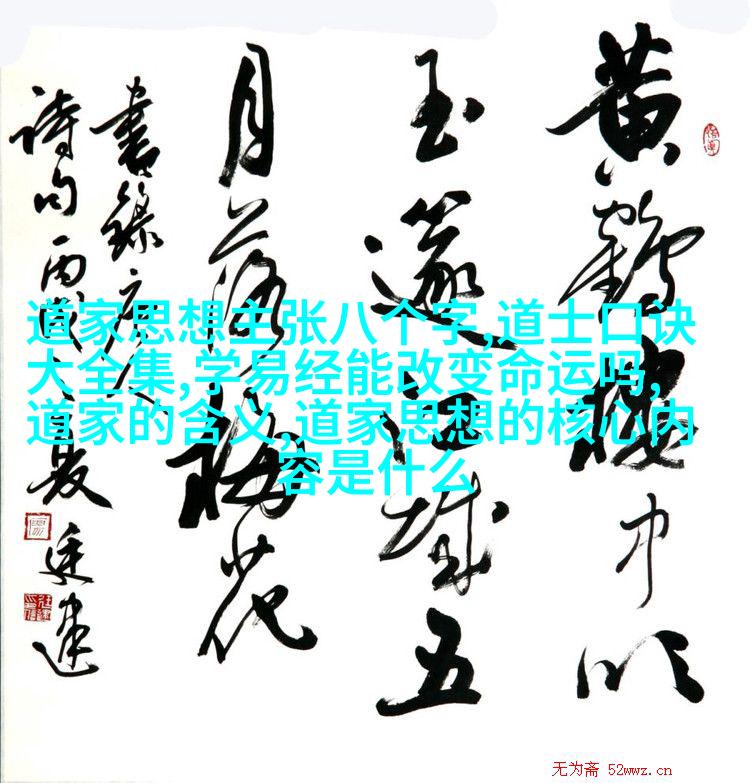 黄鶴樓中吹
玉篴江城五
月落梅花
書錄唐人
詩句丙戌之夏廷建
道家思想主张八个字,道士口诀
大全集,学易经能改变命运吗,
道家的含义,道家思想的核心内
容是什么
无为斋 52wwz.cn